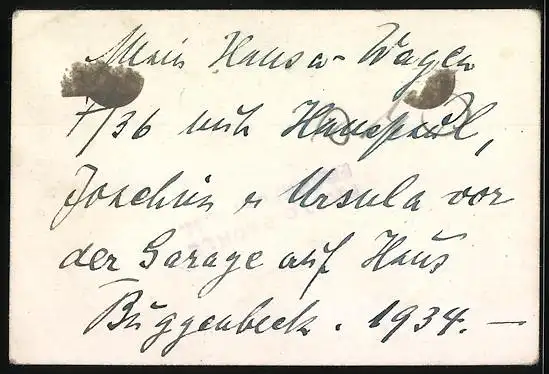 Mein Hansa-Wagen
7/36 mit Hanspaul,
Joachim u Ursula vor
der Garage auf Haus
Büggenbeck. 1934. —